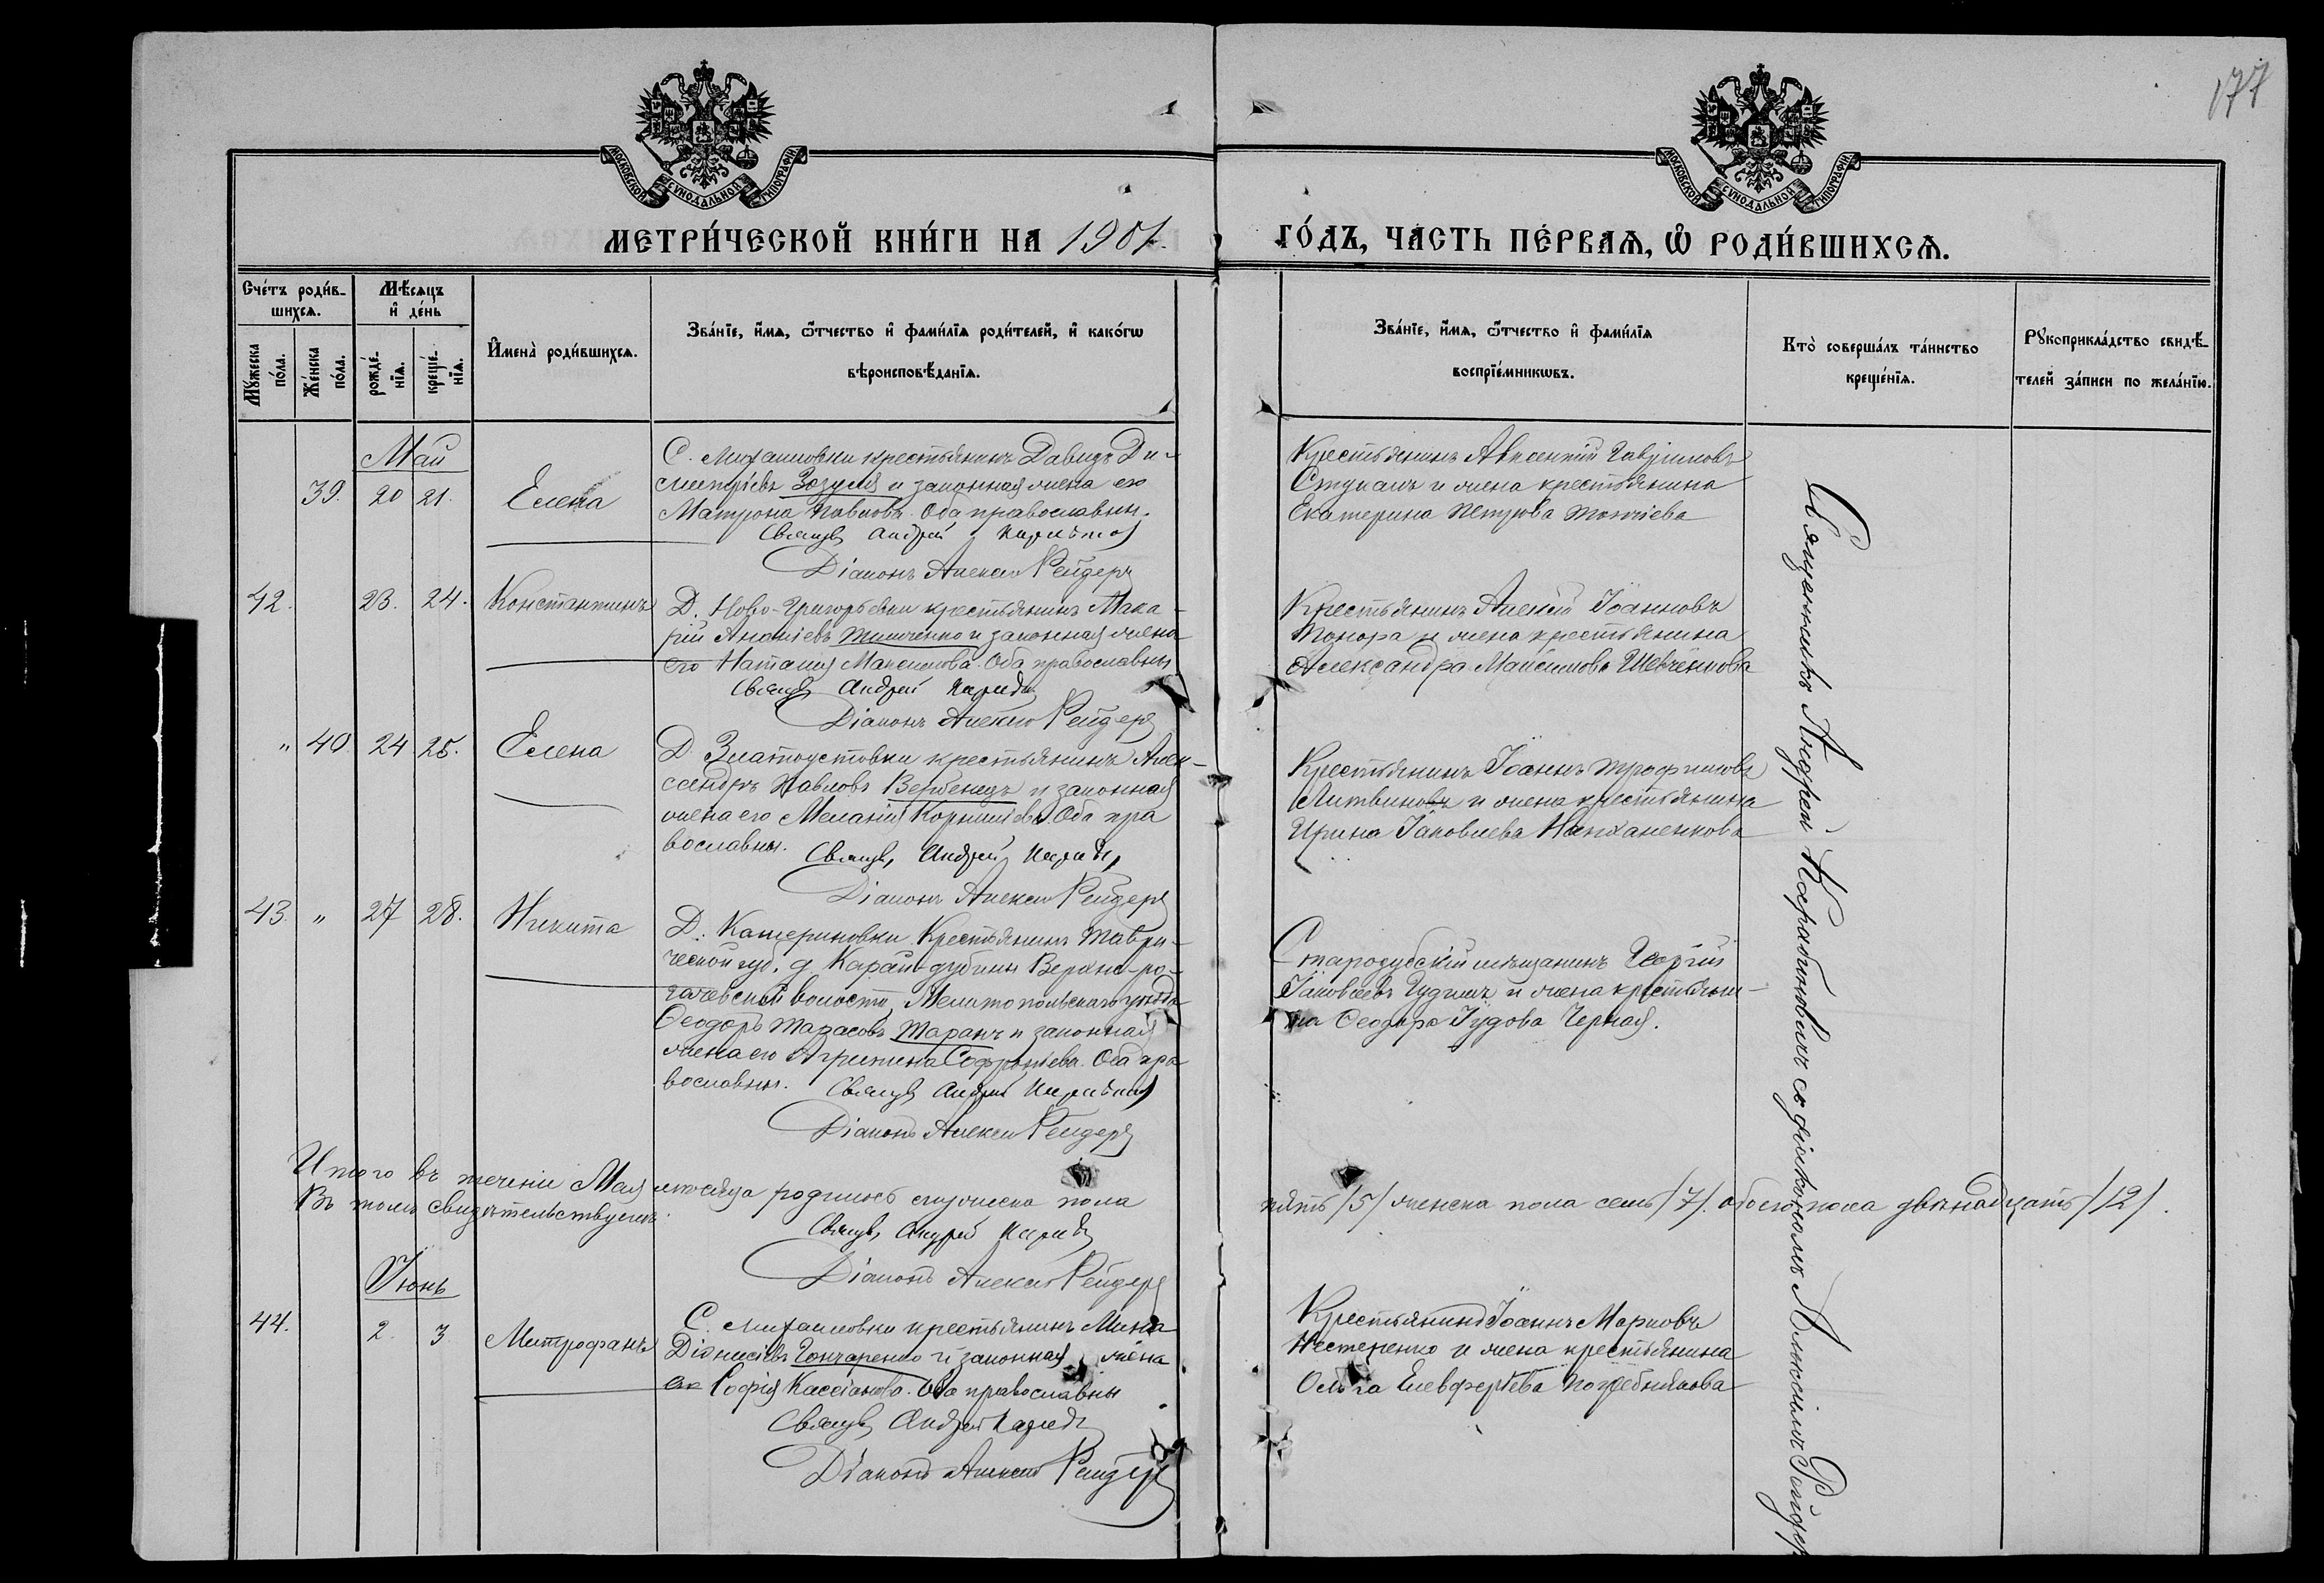 177
МОСКОВСКОЙ СУНОДАЛЬНОЙ ТИПОГРАФІИ
МОСКОВСКОЙ СУНОДАЛЬНОЙ ТИПОГРАФІИ
МЕТРИ́ЧЕСКОЙ КНИ́ГИ НА 1901.
ГО́ДЪ, ЧА́СТЬ ПЕ́РВАѦ, Ѡ҆ РОДИ́ВШИХСѦ.
Сче́тъ роди́в-
шихсѧ.
Мꙋ́жеска по́ла.
Же́нска по́ла.
Мѣ́сѧцъ
и҆ де́нь
рожде́-нїѧ.
креще́-нїѧ.
И҆мена̀ роди́вшихсѧ.
Зва́нїе, и҆́мѧ, ѻ҆́тчество и҆ фами́лїѧ роди́телей, и҆ како́гѡ
вѣроисповѣ́данїѧ.
Зва́нїе, и҆́мѧ, ѻ҆́тчество и҆ фами́лїѧ
воспрїе́мникѡвъ.
Кто̀ соверша́лъ та́инство
креще́нїѧ.
Рꙋкоприкла́дство свидѣ́-
телей за́писи по жела́нїю.
Май
39. 20 21. Елена
С. Михаиловки крестьянинъ Давидъ Ди-
митріевъ Зозуля и законная жена его
Матрона Павлова. Оба православны.
Свящ. Андрей
Діаконъ Алексій Рейдеръ
Крестьянинъ Авксентій
Стукалъ и жена крестьянина
Екатерина Петрова
42. 23. 24. Константинъ
Д. Ново-Григорьевки крестьянинъ Мака-
рій Ананіевъ Тимченко и законная жена
его Наталія Максимова. Оба православны
Свящ. Андрей
Діаконъ Алексій Рейдеръ
Крестьянинъ Алексій Іоанновъ
и жена крестьянина
Александра Максимова Шевченкова
" 40. 24 25. Елена
Д. Златоустовки крестьянинъ Алек-
сандръ Павловъ Вербенецъ и законная
жена его Меланія Корниліева. Оба пра
вославны. Свящ. Андрей
Діаконъ Алексій Рейдеръ
Крестьянинъ Іоаннъ Трофимовъ
Литвиновъ и жена крестьянина
Ирина Іаковлева
43. " 27 28. Никита
Д. Катериновки Крестьянинъ Таври-
ческой губ. д. Карай-дубины Верхне-ро-
гачевской волости, Мелитопольскаго уѣзда
Ѳеодоръ Тарасовъ Таранъ и законная
жена его Агрипина Софроніева. Оба пра
вославны. Свящ. Андрей
Діаконъ Алексій Рейдеръ
Стародубскій мѣщанинъ Георгій
Іаковлевъ и жена крестьяни-
на Ѳеодора Іудова Черная.
Итого въ теченіи Мая мѣсяца родилось мужеска пола
пять /5/ женска пола семь /7/. обоего пола двѣнадцать /12/.
Въ томъ свидѣтельствуемъ:
Свящ. Андрей
Діаконъ Алексій Рейдеръ
Іюнь
44. 2. 3 Митрофанъ
С. Михаиловки крестьянинъ Мина
Діонисіевъ Гончаренко и законная жена
его Софія Кассіанова. Оба православны
Свящ. Андрей
Діаконъ Алексій Рейдеръ
Крестьянинъ Іоаннъ Марковъ
Нестеренко и жена крестьянина
Ольга Елевферіева Погребнякова
Священникъ Андрей Карабиновичъ съ діакономъ Алексіемъ Рейдер